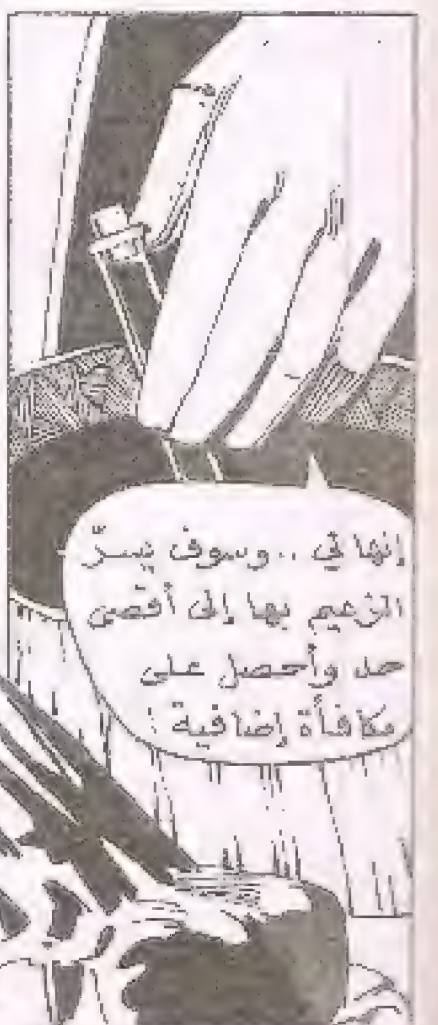 إنها لي .. وسوف يسرّ
الزعيم بها إلى أقصى
حد وأحصل على
مكافأة إضافية !